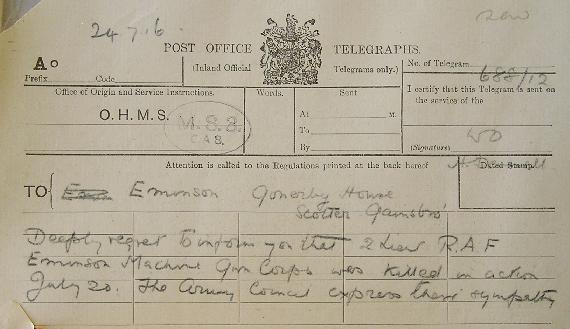 24.7.16.
POST OFFICE TELEGRAPHS.
A⁰
(Inland Official Telegrams only.)
No. of Telegram
688/12
Prefix Code
Office of Origin and Service Instructions.
Words.
Sent
I certify that this Telegram is sent on
the service of the
O.H.M.S.
M.S.3.
CAS.
At M.
To
By
WO
(Signature)
Attention is called to the Regulations printed at the back hereof
Dated Stamp.
TO Eminson Gonerby House
Scotter Gainsbro'
Deeply regret to inform you that 2 Lieut R.A.F
Eminson Machine Gun Corps was killed in action
July 20. The Army Council express their sympathy